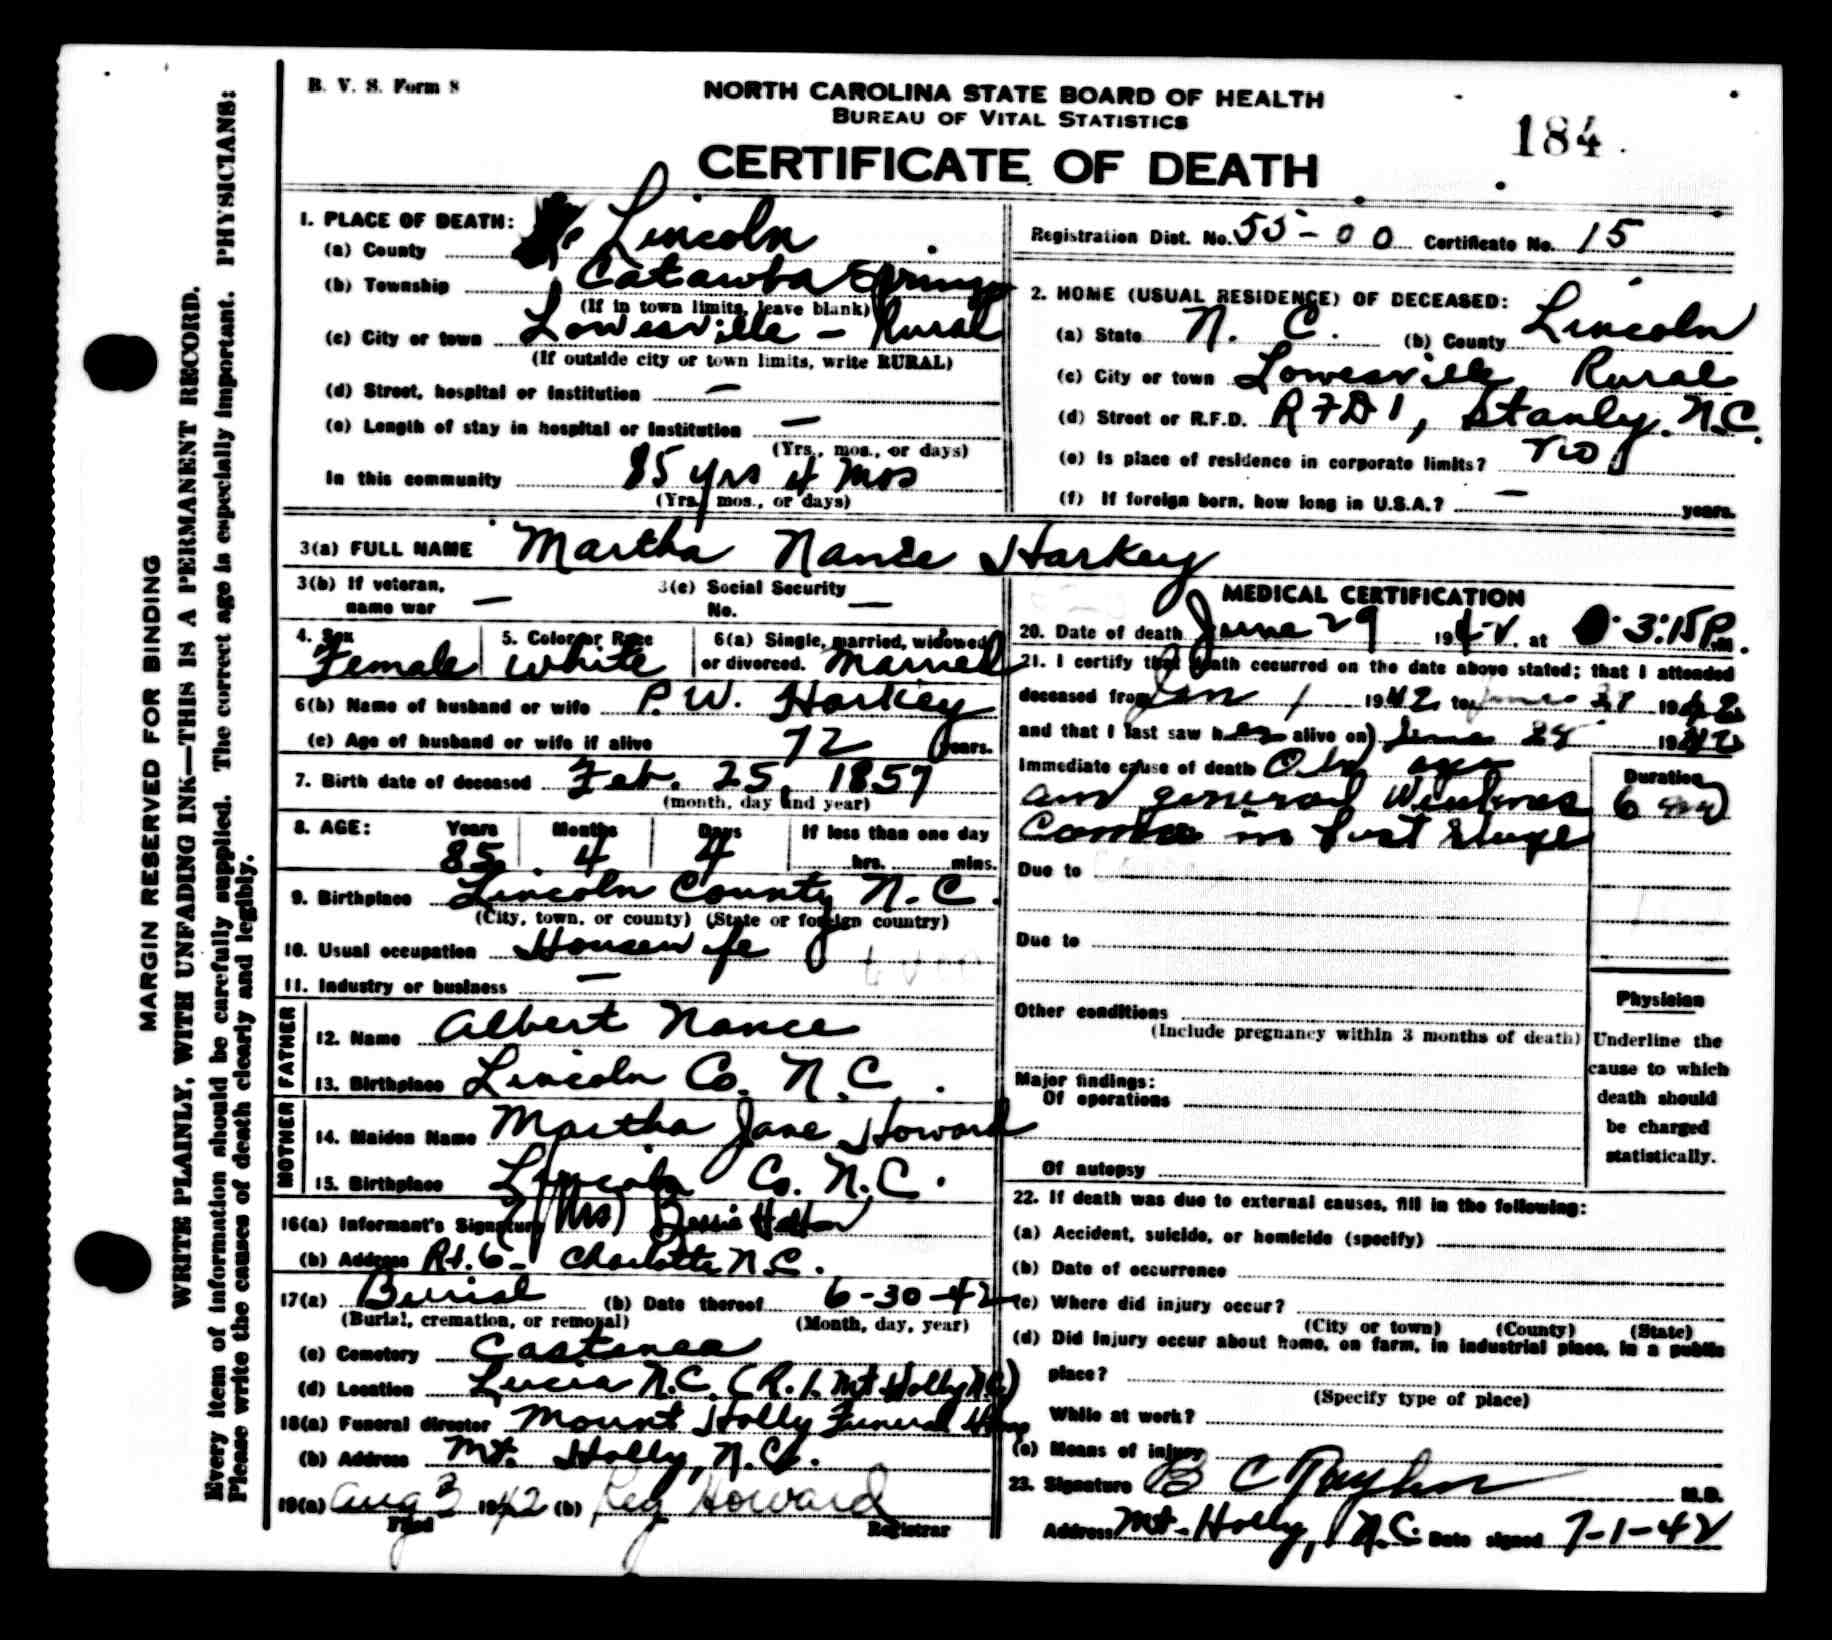 B. V. S. Form 8
NORTH CAROLINA STATE BOARD OF HEALTH
BUREAU OF VITAL STATISTICS
CERTIFICATE OF DEATH
184
MARGIN RESERVED FOR BINDING
WRITE PLAINLY, WITH UNFADING INK—THIS IS A PERMANENT RECORD.
Every item of information should be carefully supplied. The correct age is especially important. PHYSICIANS:
Please write the causes of death clearly and legibly.
1. PLACE OF DEATH:
(a) County Lincoln
(b) Township Catawba Springs
(If in town limits, leave blank)
(c) City or town Lowesville - Rural
(If outside city or town limits, write RURAL)
(d) Street, hospital or institution —
(e) Length of stay in hospital or institution —
(Yrs., mos., or days)
In this community 85 yrs 4 mos
(Yrs., mos., or days)
Registration Dist. No. 55-00 Certificate No. 15
2. HOME (USUAL RESIDENCE) OF DECEASED:
(a) State N. C. (b) County Lincoln
(c) City or town Lowesville Rural
(d) Street or R.F.D. RFD 1, Stanly. N.C.
(e) Is place of residence in corporate limits? no
(f) If foreign born, how long in U.S.A.? — years.
3(a) FULL NAME Martha Nance Harkey
3(b) If veteran, name war —
3(c) Social Security No. —
4. Sex Female
5. Color or Race White
6(a) Single, married, widowed or divorced. Married
6(b) Name of husband or wife P. W. Harkey
(c) Age of husband or wife if alive 72 years.
7. Birth date of deceased Feb. 25, 1857
(month, day and year)
8. AGE: Years 85 Months 4 Days 4 If less than one day
hrs. mins.
9. Birthplace Lincoln County N.C.
(City, town, or county) (State or foreign country)
10. Usual occupation Housewife
11. Industry or business —
FATHER
12. Name Albert Nance
13. Birthplace Lincoln Co. N.C.
MOTHER
14. Maiden Name Martha Jane Howard
15. Birthplace Lincoln Co. N.C.
16(a) Informant's Signature (Mrs) Bessie
(b) Address Rt. 6 - Charlotte N.C.
17(a) Burial (b) Date thereof 6-30-42
(Burial, cremation, or removal) (Month, day, year)
(c) Cemetery Castanea
(d) Location Lucia N.C. (R.1. Mt Holly N.C.)
18(a) Funeral director Mount Holly Funeral Home
(b) Address Mt. Holly, N.C.
19(a) Aug 3 1942 (b) Reg Howard
Filed Registrar
MEDICAL CERTIFICATION
20. Date of death June 29 1942, at 3:15 P.m.
21. I certify that death occurred on the date above stated; that I attended
deceased from Jan 1 1942 to June 1942
and that I last saw her alive on June 28 1942
Immediate cause of death Old age
and general Weakness
Coma in last stage
Duration
6
Due to
Due to
Other conditions
(Include pregnancy within 3 months of death)
Major findings:
Of operations
Of autopsy
Physician
Underline the
cause to which
death should
be charged
statistically.
22. If death was due to external causes, fill in the following:
(a) Accident, suicide, or homicide (specify)
(b) Date of occurrence
(c) Where did injury occur?
(City or town) (County) (State)
(d) Did injury occur about home, on farm, in industrial place, in a public
place?
(Specify type of place)
While at work?
(e) Means of injury
23. Signature B C Taylor M.D.
Address Mt. Holly, N.C. Date signed 7-1-42